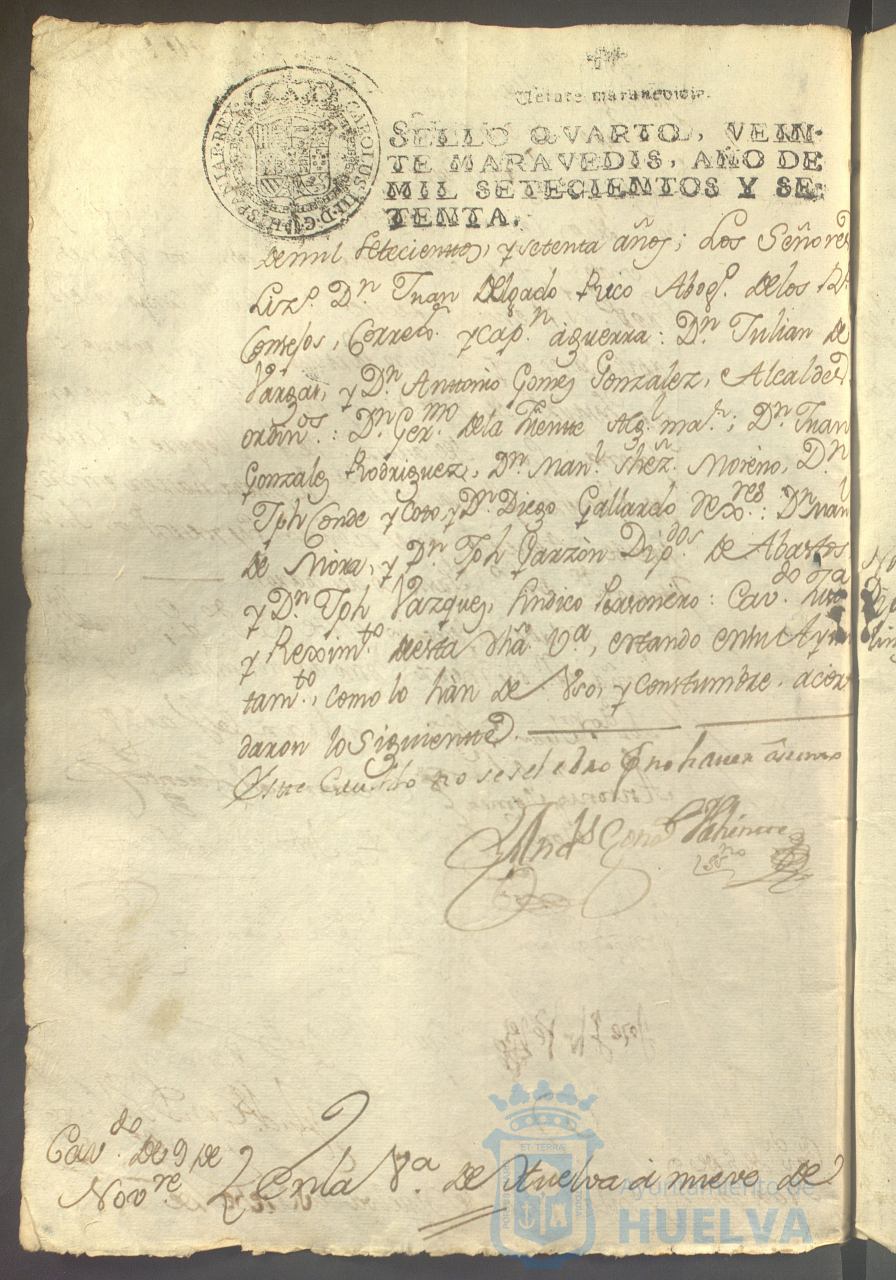 Veinte maravedis.
SELLO QVARTO, VEIN-
TE MARAVEDIS, AÑO DE
MIL SETECIENTOS Y SE-
TENTA.
CAROLUS III D G HISPANIAR REX
de mil setecientos, y setenta años; Los Señores
Lizdo. Dn. Juan Delgado Rico Abogo. de los Rs.
Consejos, Corregor. y Capn. a guerra: Dn. Julian de
Vargas, y Dn. Anttonio Gomez Gonzalez, Alcaldes
ordinos.: Dn. Germo. de la Fuente Alg. mar.; Dn. Juan
Gonzalez Rodriguez, Dn. Manl. Shez. Moreno, Dn.
Jph Conde y Coto, y Dn. Diego Gallardo Rexres.: Dn. Manl
de Mora, y Dn. Jph Garzòn Dipdos. de Abastos
y Dn. Jph Vazquez, Sindico Personero: Cavdo. Justa
y Reximto. desta dha. Va., estando en su Ayun
tamto., como lo hàn de Uso, y Constumbre. acor
daron lo Siguiente.
Este Cavildo no se selebro
Andrs Gonz
Essno
Cavdo. de 9 de
Novre
En la Va. de Huelva à nueve de
Ayuntamiento de
HUELVA